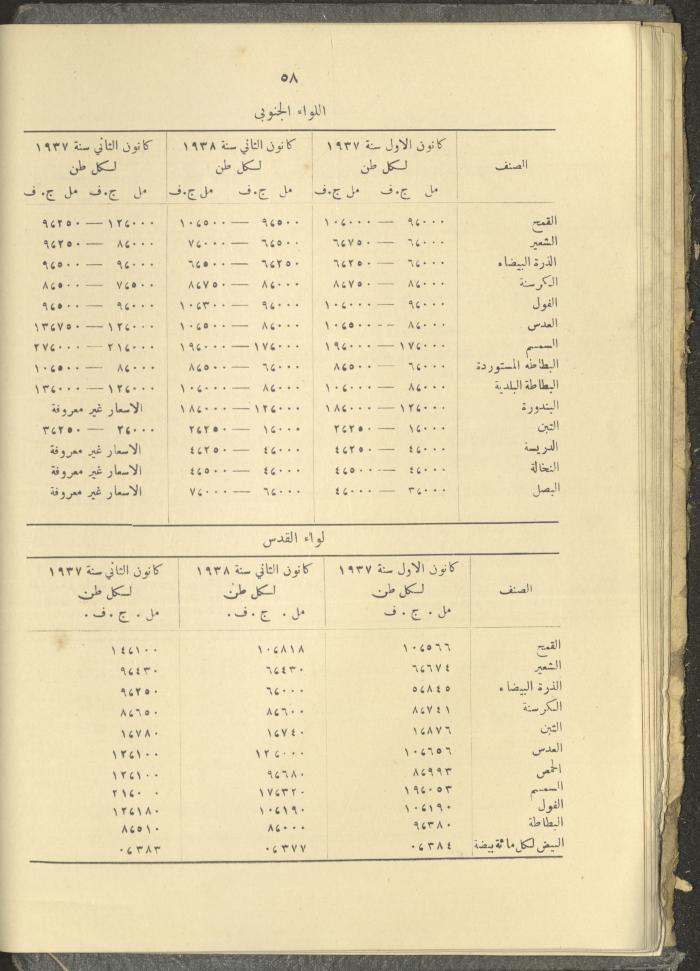 ٥٨
اللواء الجنوبي
الصنف كانون الاول سنة ١٩٣٧ كانون الثاني سنة ١٩٣٨ كانون الثاني سنة ١٩٣٧
لكل طن لكل طن لكل طن
مل ج.ف مل ج.ف مل ج.ف مل ج.ف مل ج.ف مل ج.ف
القمح ٩،٠٠٠ — ١٠،٠٠٠ ٩،٥٠٠ — ١٠،٥٠٠ ١٢،٠٠٠ — ٩،٢٥٠
الشعير ٦،٠٠٠ — ٦،٧٥٠ ٦،٥٠٠ — ٧،٠٠٠ ٨،٠٠٠ — ٩،٢٥٠
الذرة البيضاء ٦،٠٠٠ — ٦،٢٥٠ ٦،٢٥٠ — ٦،٥٠٠ ٩،٠٠٠ — ٩،٥٠٠
الكرسنة ٨،٠٠٠ — ٨،٧٥٠ ٨،٠٠٠ — ٨،٧٥٠ ٧،٥٠٠ — ٨،٥٠٠
الفول ٩،٠٠٠ — ١٠،٠٠٠ ٩،٠٠٠ — ١٠،٣٠٠ ٩،٠٠٠ — ٩،٥٠٠
العدس ٨،٠٠٠ — ١٠،٥٠٠ ٨،٠٠٠ — ١٠،٥٠٠ ١٢،٠٠٠ — ١٣،٧٥٠
السمسم ١٧،٠٠٠ — ١٩،٠٠٠ ١٧،٠٠٠ — ١٩،٠٠٠ ٢١،٠٠٠ — ٢٧،٠٠٠
البطاطه المستوردة ٦،٠٠٠ — ٨،٥٠٠ ٦،٠٠٠ — ٨،٥٠٠ ٨،٠٠٠ — ١٠،٥٠٠
البطاطة البلدية ٨،٠٠٠ — ١٠،٠٠٠ ٨،٠٠٠ — ١٠،٠٠٠ ١٢،٠٠٠ — ١٣،٠٠٠
البندورة ١٢،٠٠٠ — ١٨،٠٠٠ ١٢،٠٠٠ — ١٨،٠٠٠ الاسعار غير معروفة
التبن ١،٠٠٠ — ٢،٢٥٠ ١،٠٠٠ — ٢،٢٥٠ ٢،٠٠٠ — ٣،٢٥٠
الدريسة ٤،٠٠٠ — ٤،٢٥٠ ٤،٠٠٠ — ٤،٢٥٠ الاسعار غير معروفة
النخالة ٤،٠٠٠ — ٤،٥٠٠ ٤،٠٠٠ — ٤،٥٠٠ الاسعار غير معروفة
البصل ٣،٠٠٠ — ٤،٠٠٠ ٦،٠٠٠ — ٧،٠٠٠ الاسعار غير معروفة
لواء القدس
الصنف كانون الاول سنة ١٩٣٧ كانون الثاني سنة ١٩٣٨ كانون الثاني سنة ١٩٣٧
لكل طن لكل طن لكل طن
مل . ج . ف مل . ج . ف . مل . ج . ف .
القمح ١٠،٥٦٦ ١٠،٨١٨ ١٤،١٠٠
الشعير ٦،٦٧٤ ٦،٤٣٠ ٩،٤٣٠
الذرة البيضاء ٥،٨٤٥ ٦،٠٠٠ ٩،٢٥٠
الكرسنة ٨،٧٤١ ٨،٦٠٠ ٨،٦٥٠
التبن ١،٨٧٦ ١،٧٤٠ ١،٧٨٠
العدس ١٠،٦٥٦ ١٢،٠٠٠ ١٢،١٠٠
الحمص ٨،٩٩٣ ٩،٦٨٠ ١٢،١٠٠
السمسم ١٩،٠٥٣ ١٧،٣٢٠ ٢١،٠ ٠
الفول ١٠،١٩٠ ١٠،١٩٠ ١٢،١٨٠
البطاطة ٩،٣٨٠ ٨،٠٠٠ ٨،٥١٠
البيض لكل مائة بيضة ٠،٣٨٤ ٠،٣٧٧ ٠،٣٨٣